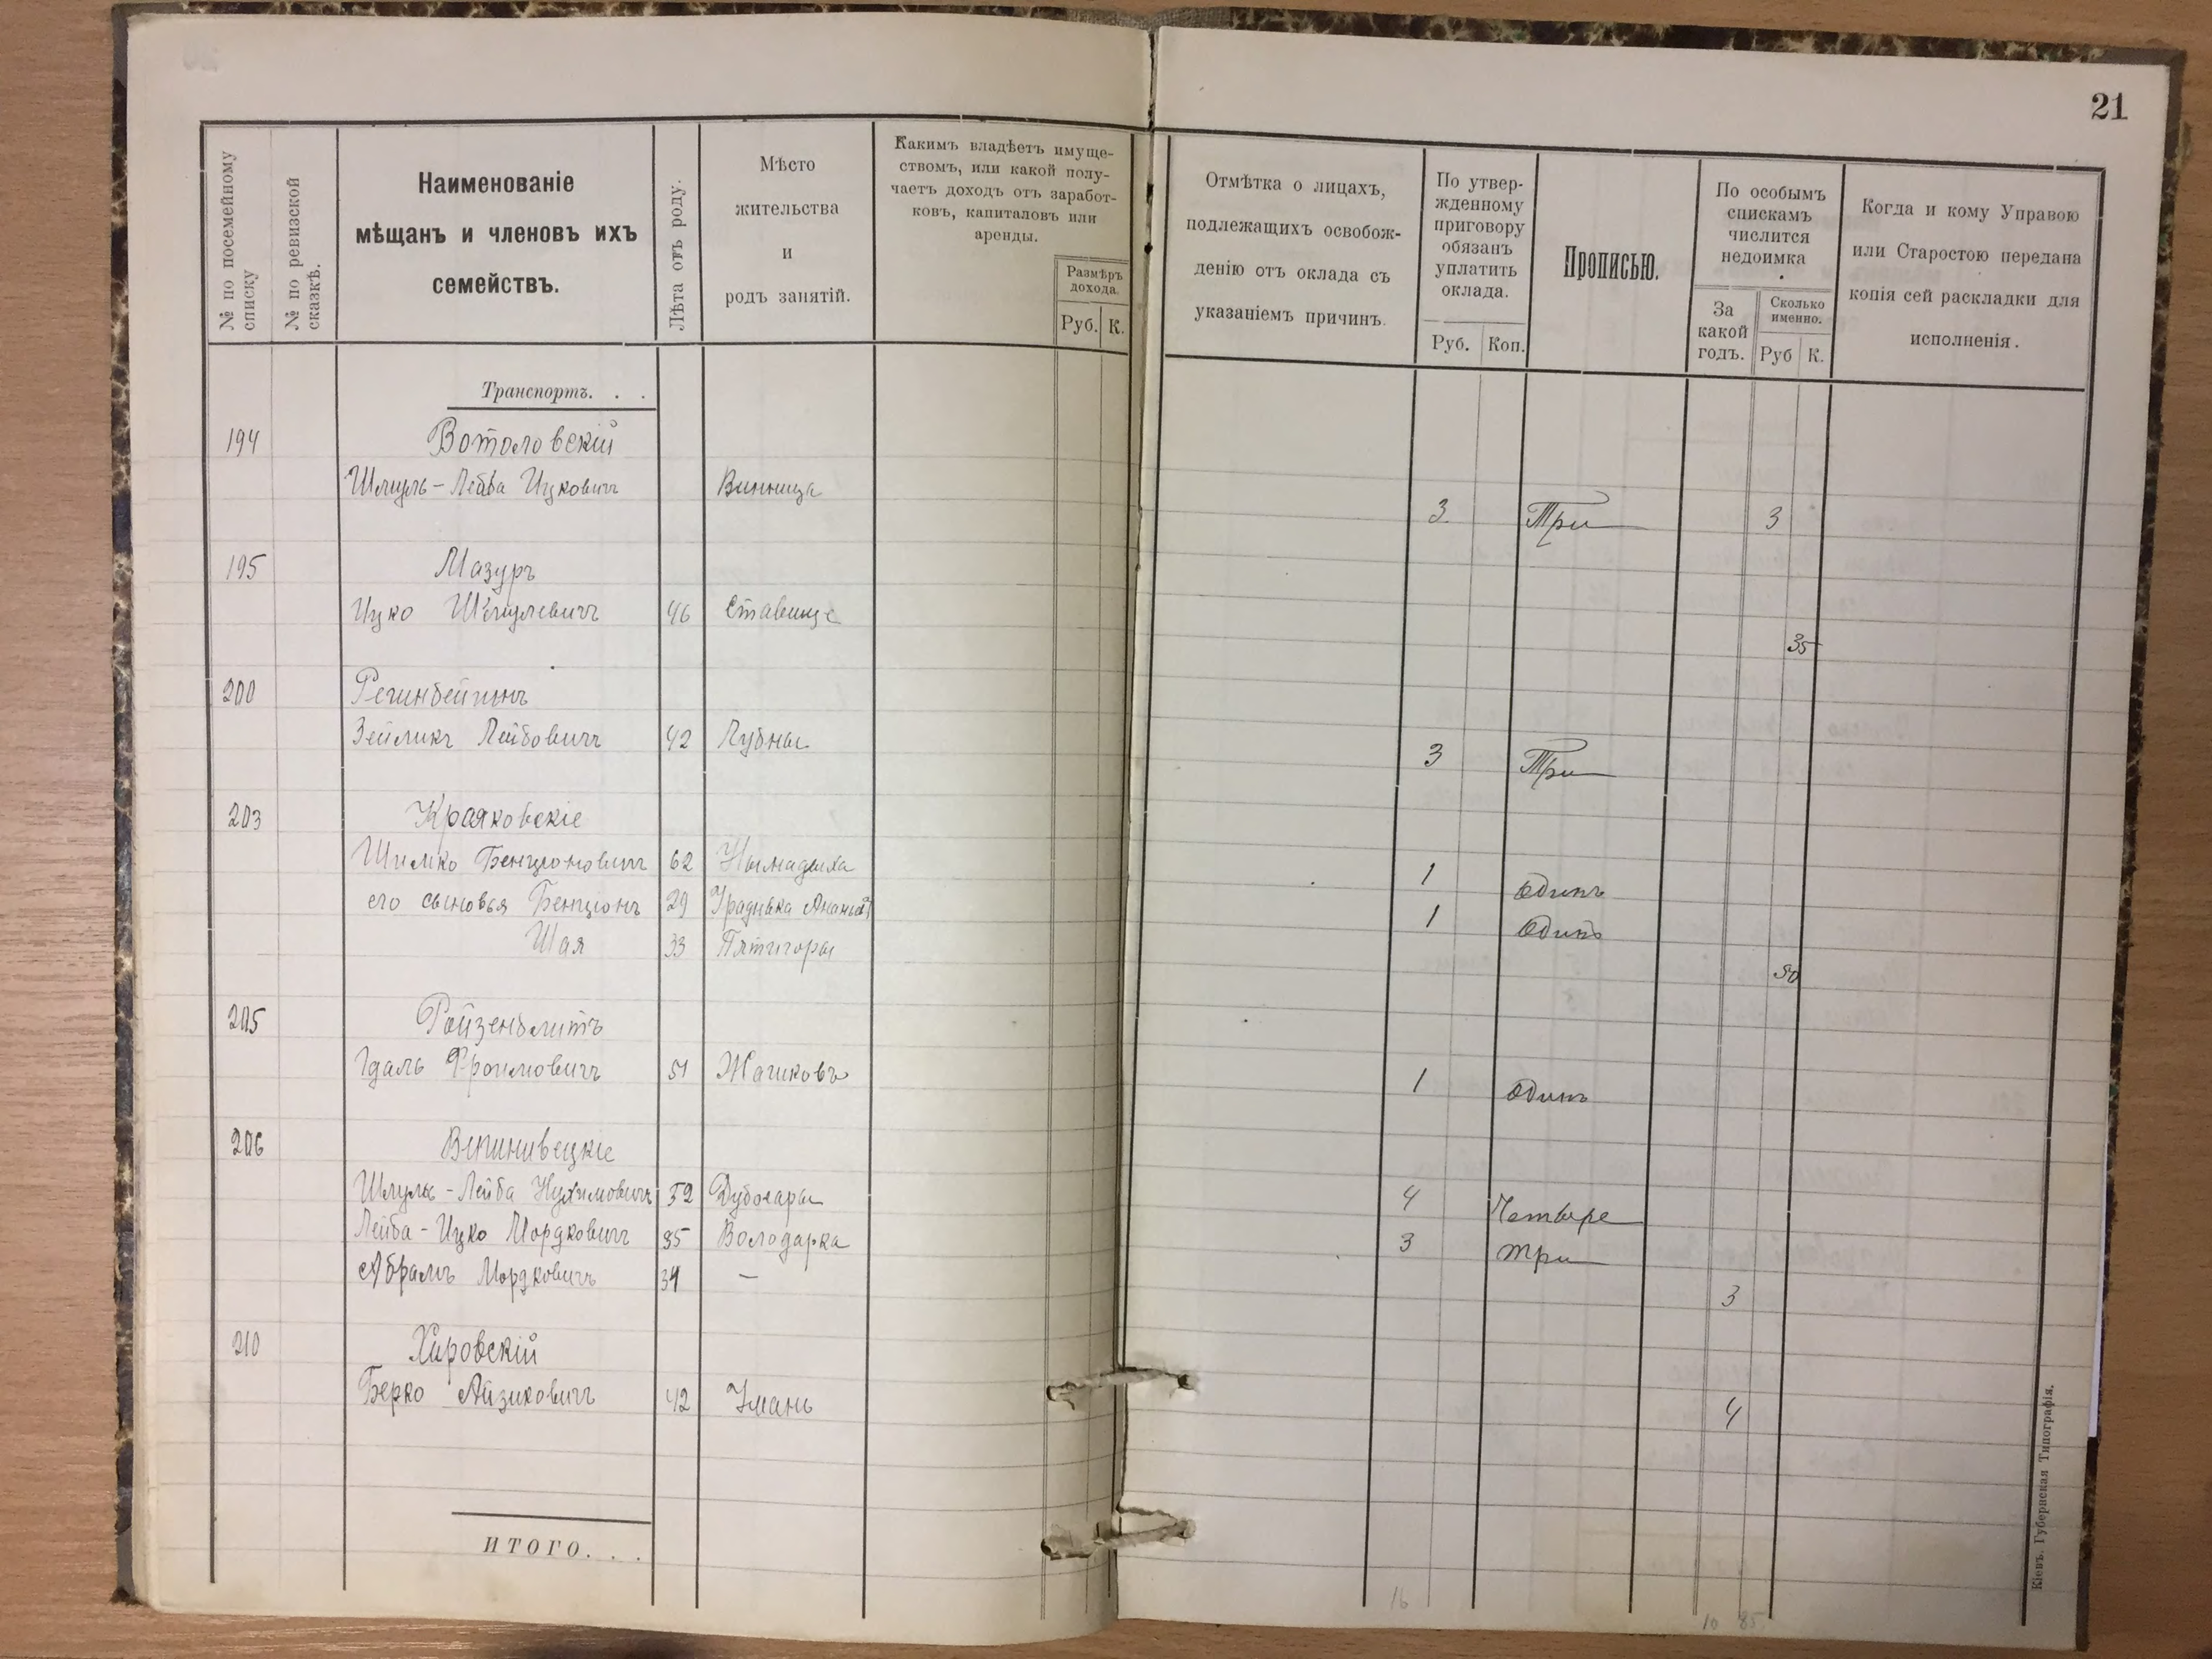 21
№ по посемейному списку
№ по ревизской сказкѣ.
Наименованіе
мѣщанъ и членовъ ихъ
семействъ.
Лѣта отъ роду.
Мѣсто
жительства
и
родъ занятій.
Какимъ владѣетъ имуще-
ствомъ, или какой полу-
чаетъ доходъ отъ заработ-
ковъ, капиталовъ или
аренды.
Размѣръ
дохода.
Руб. К.
Отмѣтка о лицахъ,
подлежащихъ освобож-
денію отъ оклада съ
указаніемъ причинъ.
По утвер-
жденному
приговору
обязанъ
уплатить
оклада.
Руб. Коп.
Прописью.
По особымъ
спискамъ
числится
недоимка
За
какой
годъ.
Сколько
именно.
Руб К.
Когда и кому Управою
или Старостою передана
копія сей раскладки для
исполненія.
Транспортъ. . .
194 Вотоловскій
Шмуль-Лейба Ицковичъ Винница 3 Три 3
195 Мазуръ
Ицко Шмулевичъ 46 Ставище 35
200
Зейликъ Лейбовичъ 42 Лубны 3 Три
203 Краяковскіе
Шимко Бенціоновичъ 62 1 Одинъ
его сыновья Бенціонъ 29 1 Одинъ
Шая 33 Пятигоры 50
205 Ройзенблитъ
Гдаль Фроимовичъ 51 Жашковъ 1 Одинъ
206 Вишнивецкіе
Шмуль-Лейба Нухимовичъ 52 Дубосары 4 Четыре
Лейба-Ицко Мордковичъ 35 Володарка 3 Три
Абрамъ Мордковичъ 34 — 3
210 Хировскій
Берко Айзиковичъ 42 Умань 4
ИТОГО. . .
16
10 85
Кіевъ. Губернская Типографія.